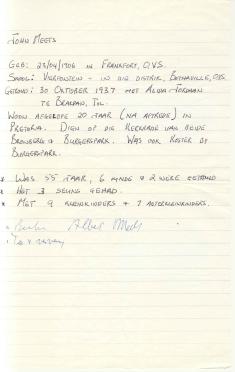 JOHN MEETS
GEB: 23/04/1906 IN FRANKFORT, OVS.
SKOOL: VIERFONTEIN - IN DIE DISTRIK, BOTHAVILLE, OVS.
GETROUD: 30 OKTOBER 1937 MET ALIDA
TE BRAKPAN, TVL.
WOON AFGELOPE 20 JAAR (NA AFTREDE) IN
PRETORIA. DIEN OP DIE KERKRADE VAN BEIDE
BRONBERG & BURGERSPARK. WAS OOK KOSTER OP
BURGERSPARK.
* WAS 55 JAAR, 6 MNDE & 2 WEKE GETROUD
* HET 3 SEUNS GEHAD.
* MET 9 KLEINKINDERS & 7 AGTERKLEINKINDERS.
Albert